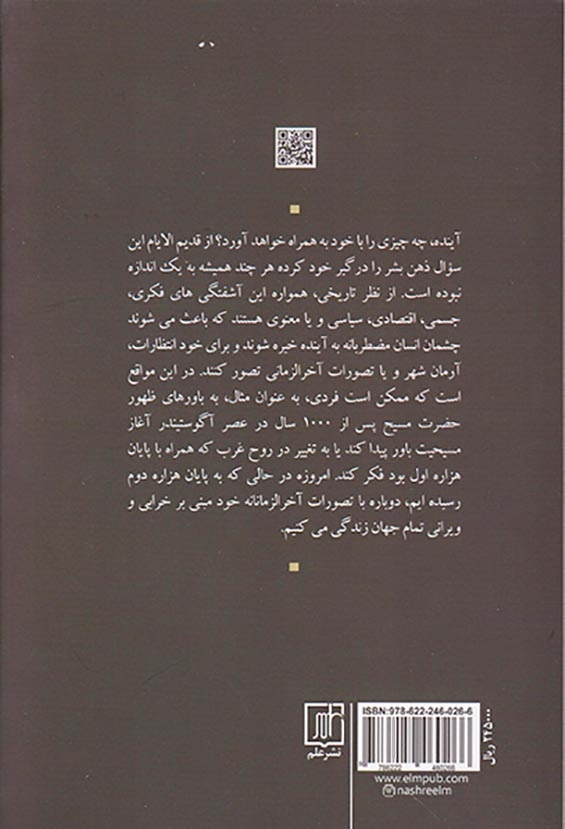 آینده، چه چیزی را با خود به همراه خواهد آورد؟ از قدیم الایام این
سؤال ذهن بشر را درگیر خود کرده هر چند همیشه به یک اندازه
نبوده است. از نظر تاریخی، همواره این آشفتگی های فکری،
جسمی، اقتصادی، سیاسی و یا معنوی هستند که باعث می شوند
چشمان انسان مضطربانه به آینده خیره شوند و برای خود انتظارات،
آرمان شهر و یا تصورات آخرالزمانی تصور کنند. در این مواقع
است که ممکن است فردی، به عنوان مثال، به باورهای ظهور
حضرت مسیح پس از ۱۰۰۰ سال در عصر آگوستیندر آغاز
مسیحیت باور پیدا کند یا به تغییر در روح غرب که همراه با پایان
هزاره اول بود فکر کند. امروزه در حالی که به پایان هزاره دوم
رسیده ایم، دوباره با تصورات آخرالزمانانه خود مبنی بر خرابی و
ویرانی تمام جهان زندگی می کنیم.
ISBN: 978-622-246-026-6
نشر علم
www.elmpub.com
nashreelm
۲۴۵۰۰۰ ریال